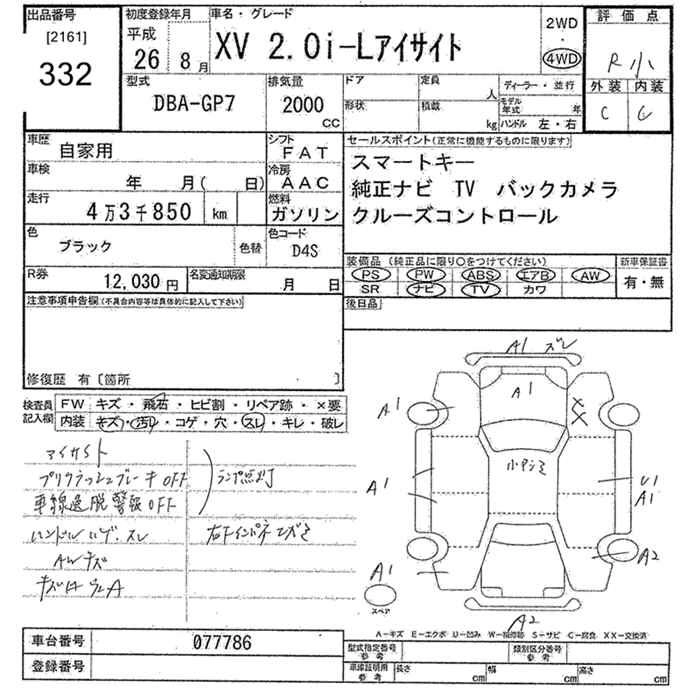 出品番号
[2161]
332
初度登録年月
平成
26 8月
車名・グレード
XV 2.0i-Lアイサイト
2WD
・
4WD
評価点
R小
外装 内装
C C
型式
DBA-GP7
排気量
2000
cc
ドア
定員
人
形状
積載
kg
ディーラー・並行
モデル年式 年
ハンドル 左・右
車歴
自家用
シフト
FAT
車検
年 月( 日)
冷房
AAC
走行
4万3千850 km
燃料
ガソリン
色
ブラック
色替
色コード
D4S
R券
12,030円
名変通知期限
月 日
セールスポイント(正常に機能するものに限ります)
スマートキー
純正ナビ TV バックカメラ
クルーズコントロール
装備品(純正品に限り○をつけてください)
PS PW ABS エアB AW
SR ナビ TV カワ
新車保証書
有・無
後日品
注意事項申告欄(不具合内容等は具体的に記入して下さい)
修復歴 有〔箇所 〕
検査員
記入欄
FW キズ・飛石・ヒビ割・リペア跡・×要
内装 キズ・汚レ・コゲ・穴・スレ・キレ・破レ
アイサイト
プリクラッシュブレーキOFF
車線逸脱警報OFF
ランプ点灯
ハンドルハゲ、スレ
右下インパネ
AWキズ
A1 スレ
A1
A1
×
×
A1
小
U1
A1
A2
A1
スペア
A2
A-キズ E-エクボ U-凹み W-補修跡 S-サビ C-腐食 XX-交換済
車台番号
077786
登録番号
型式指定番号
参考
類別区分番号
参考
車庫証明用
参考
長さ cm
幅 cm
高さ cm